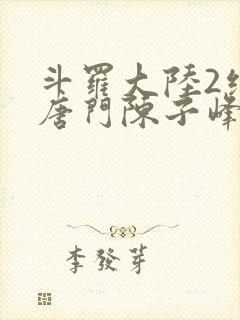 斗羅大陸2絕
唐門陳子峰
李發芽